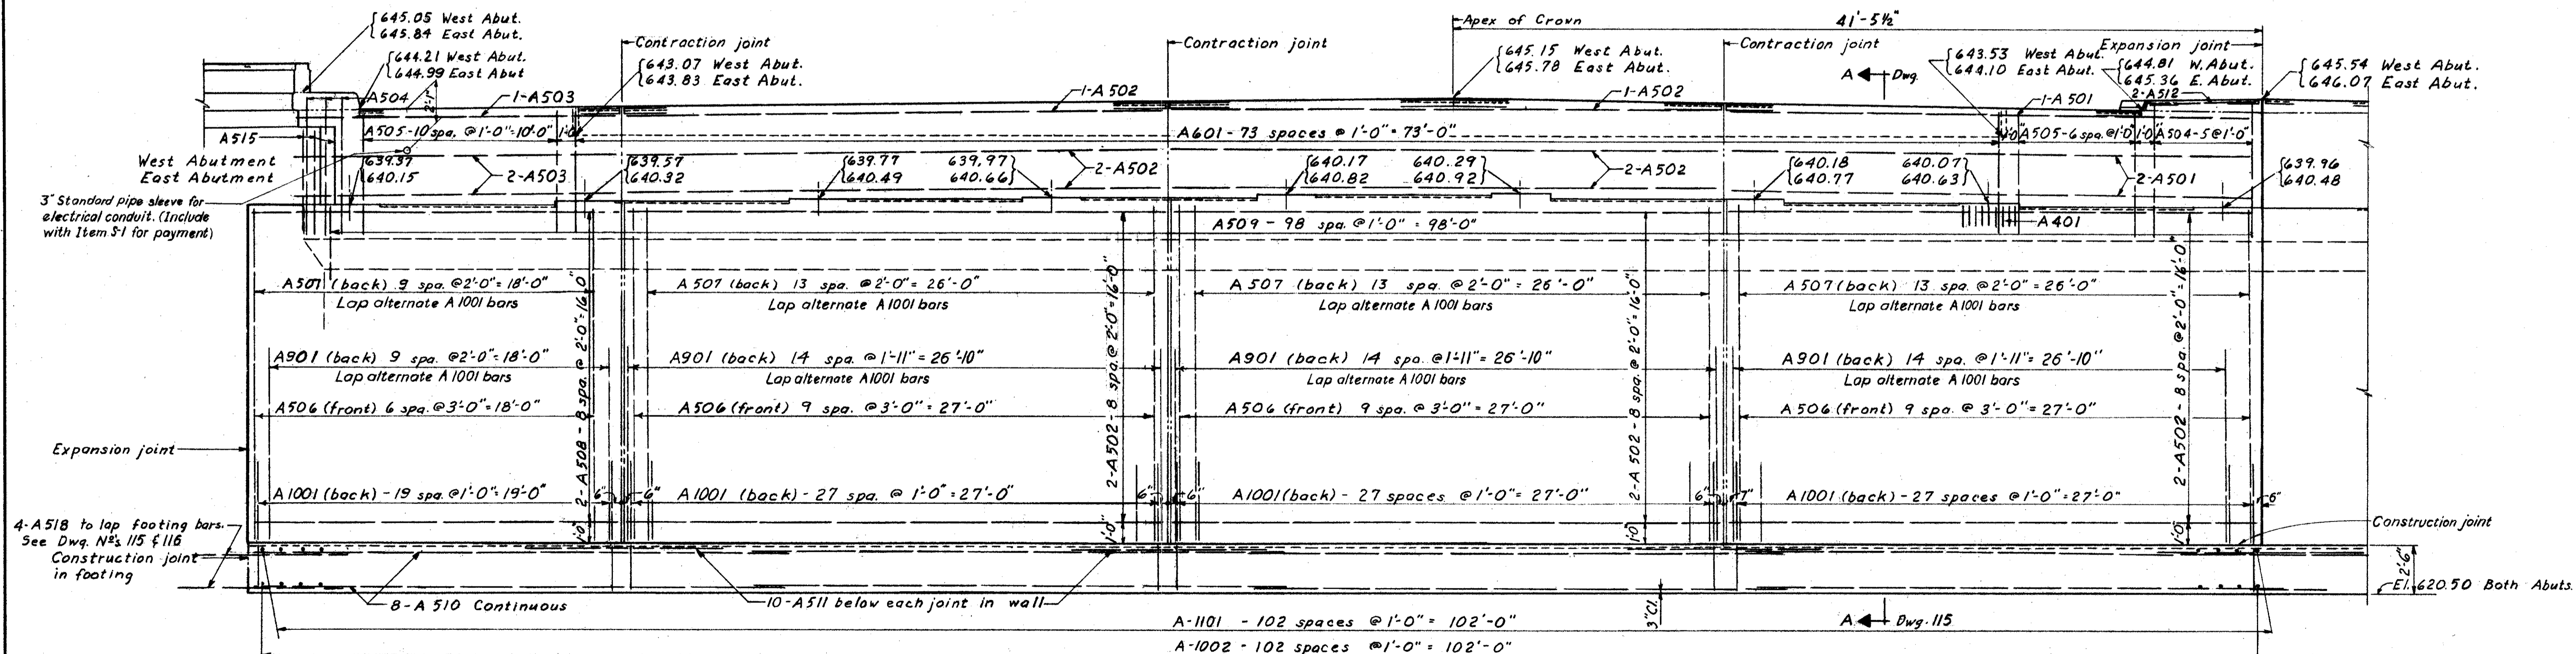 645.05 West Abut.
645.84 East Abut.
644.21 West Abut.
644.99 East Abut
Contraction joint
643.07 West Abut.
643.83 East Abut.
Contraction joint
Apex of Crown
41'-5½"
645.15 West Abut.
645.78 East Abut.
Contraction joint
A
Dwg.
643.53 West Abut.
644.10 East Abut.
Expansion joint
644.81 W. Abut.
645.36 E. Abut.
645.54 West Abut.
646.07 East Abut.
A504
2'-1"
1-A503
1-A502
1-A502
1-A501
2-A512
A515
A505-10 spa. @ 1'-0"=10'-0"
1'-0"
A601-73 spaces @ 1'-0" = 73'-0"
1'-0"
A505-6 spa. @ 1'-0"
1'-0"
A504-5 @ 1'-0"
West Abutment
East Abutment
639.37
640.15
2-A503
639.57
640.32
639.77
640.49
639.97
640.66
2-A502
640.17
640.82
640.29
640.92
2-A502
640.18
640.77
640.07
640.63
2-A501
639.96
640.48
3" Standard pipe sleeve for
electrical conduit. (Include
with Item S-1 for payment)
A509 - 98 spa. @ 1'-0" = 98'-0"
A401
A507 (back) 9 spa. @ 2'-0"= 18'-0"
Lap alternate A1001 bars
A507 (back) 13 spa. @ 2'-0" = 26'-0"
Lap alternate A1001 bars
A507 (back) 13 spa. @ 2'-0" = 26'-0"
Lap alternate A1001 bars
A507 (back) 13 spa. @ 2'-0" = 26'-0"
Lap alternate A1001 bars
2-A508 - 8 spa. @ 2'-0"=16'-0"
2-A502 - 8 spa. @ 2'-0"=16'-0"
2-A502 - 8 spa. @ 2'-0"=16'-0"
2-A502 - 8 spa. @ 2'-0"=16'-0"
A901 (back) 9 spa. @ 2'-0"= 18'-0"
Lap alternate A1001 bars
A901 (back) 14 spa. @ 1'-11"= 26'-10"
Lap alternate A1001 bars
A901 (back) 14 spa. @ 1'-11"= 26'-10"
Lap alternate A1001 bars
A901 (back) 14 spa. @ 1'-11"= 26'-10"
Lap alternate A1001 bars
A506 (front) 6 spa. @ 3'-0"=18'-0"
A506 (front) 9 spa. @ 3'-0"= 27'-0"
A506 (front) 9 spa. @ 3'-0" = 27'-0"
A506 (front) 9 spa. @ 3'-0"= 27'-0"
Expansion joint
A1001 (back) - 19 spa. @ 1'-0"= 19'-0"
6"
6"
A1001 (back) - 27 spa. @ 1'-0"= 27'-0"
6"
6"
A1001 (back) - 27 spaces @ 1'-0"= 27'-0"
6"
7"
A1001 (back) - 27 spaces @ 1'-0"= 27'-0"
6"
1'-0"
1'-0"
1'-0"
1'-0"
4-A518 to lap footing bars.
See Dwg. Nº's 115 & 116
Construction joint
in footing
Construction joint
2'-6"
8-A510 Continuous
10-A511 below each joint in wall
3"Cl.
El. 620.50 Both Abuts.
A-1101 - 102 spaces @ 1'-0" = 102'-0"
A
Dwg. 115
A-1002 - 102 spaces @ 1'-0" = 102'-0"